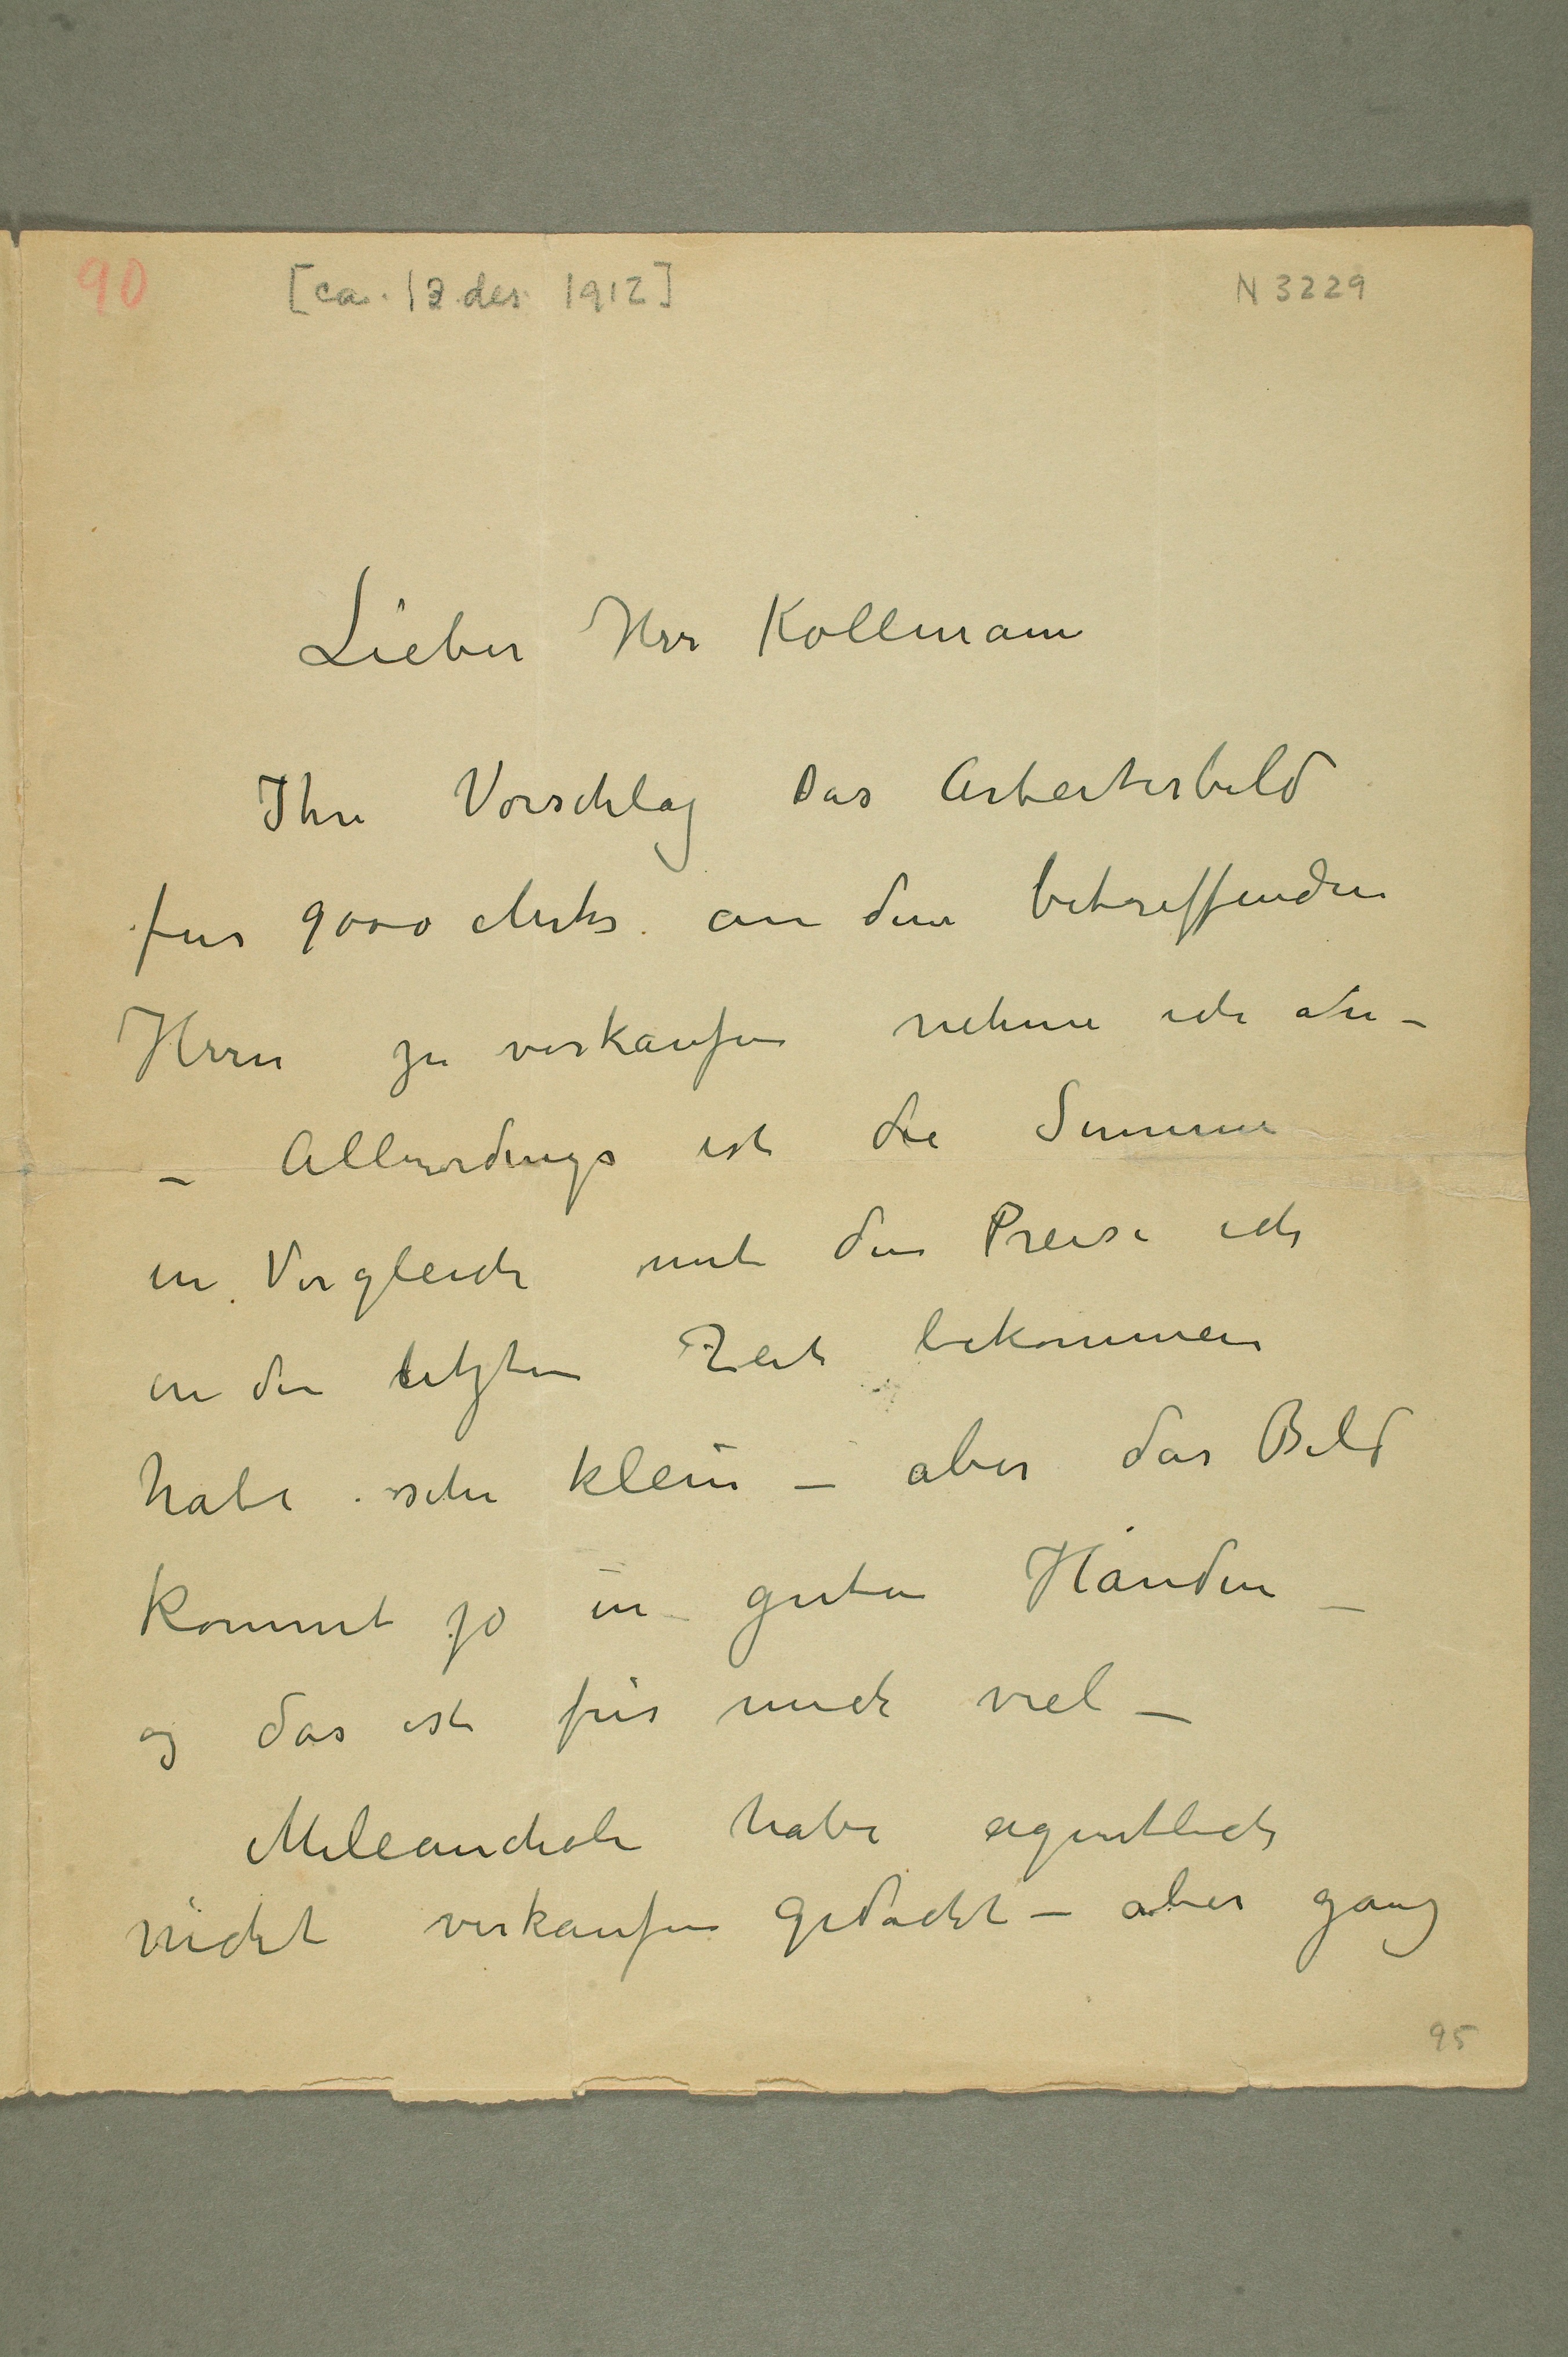 90 [ca. 12 des 1912] N 3229
Lieber Herr Kollmann
Ihre Vorschlag das Arbeiterbild
fur 9000 Mrks. an dem betreffenden
Herrn zu verkaufen nehme ich an –
– Allerdings ist die Summe
in Vergleich mit den Preise ich
in der letzten Zeit bekommen
habe sehr klein – aber das Bild
kommt jo in guten Händen –
og das ist für mich viel –
Meleancholi habe eigentlich
nicht verkaufen gedacht – aber ganz
95